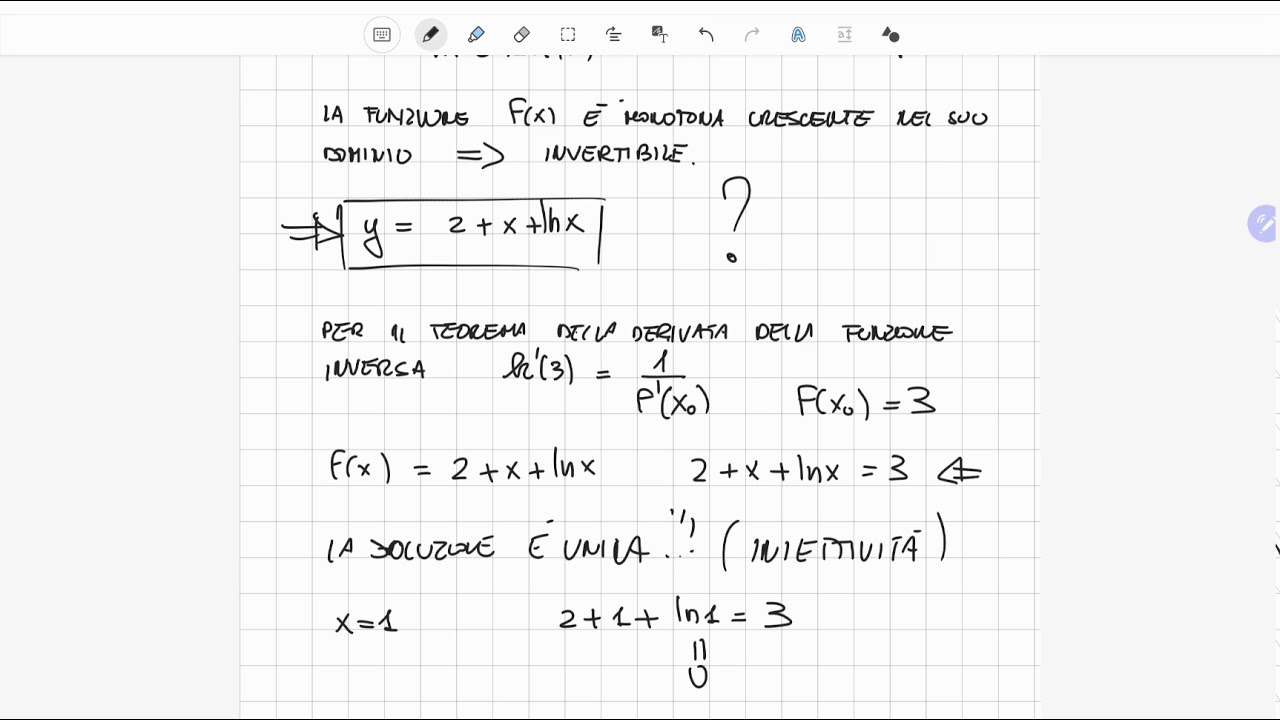 LA FUNZIONE F(x) È MONOTONA CRESCENTE NEL SUO
DOMINIO => INVERTIBILE.
y = 2 + x + ln x ?
PER IL TEOREMA DELLA DERIVATA DELLA FUNZIONE
INVERSA h'(3) = 1 / F'(x₀) F(x₀) = 3
F(x) = 2 + x + ln x 2 + x + ln x = 3 ⇐
LA SOLUZIONE È UNICA !!! (INIETTIVITÀ)
x = 1 2 + 1 + ln 1 = 3
=
0